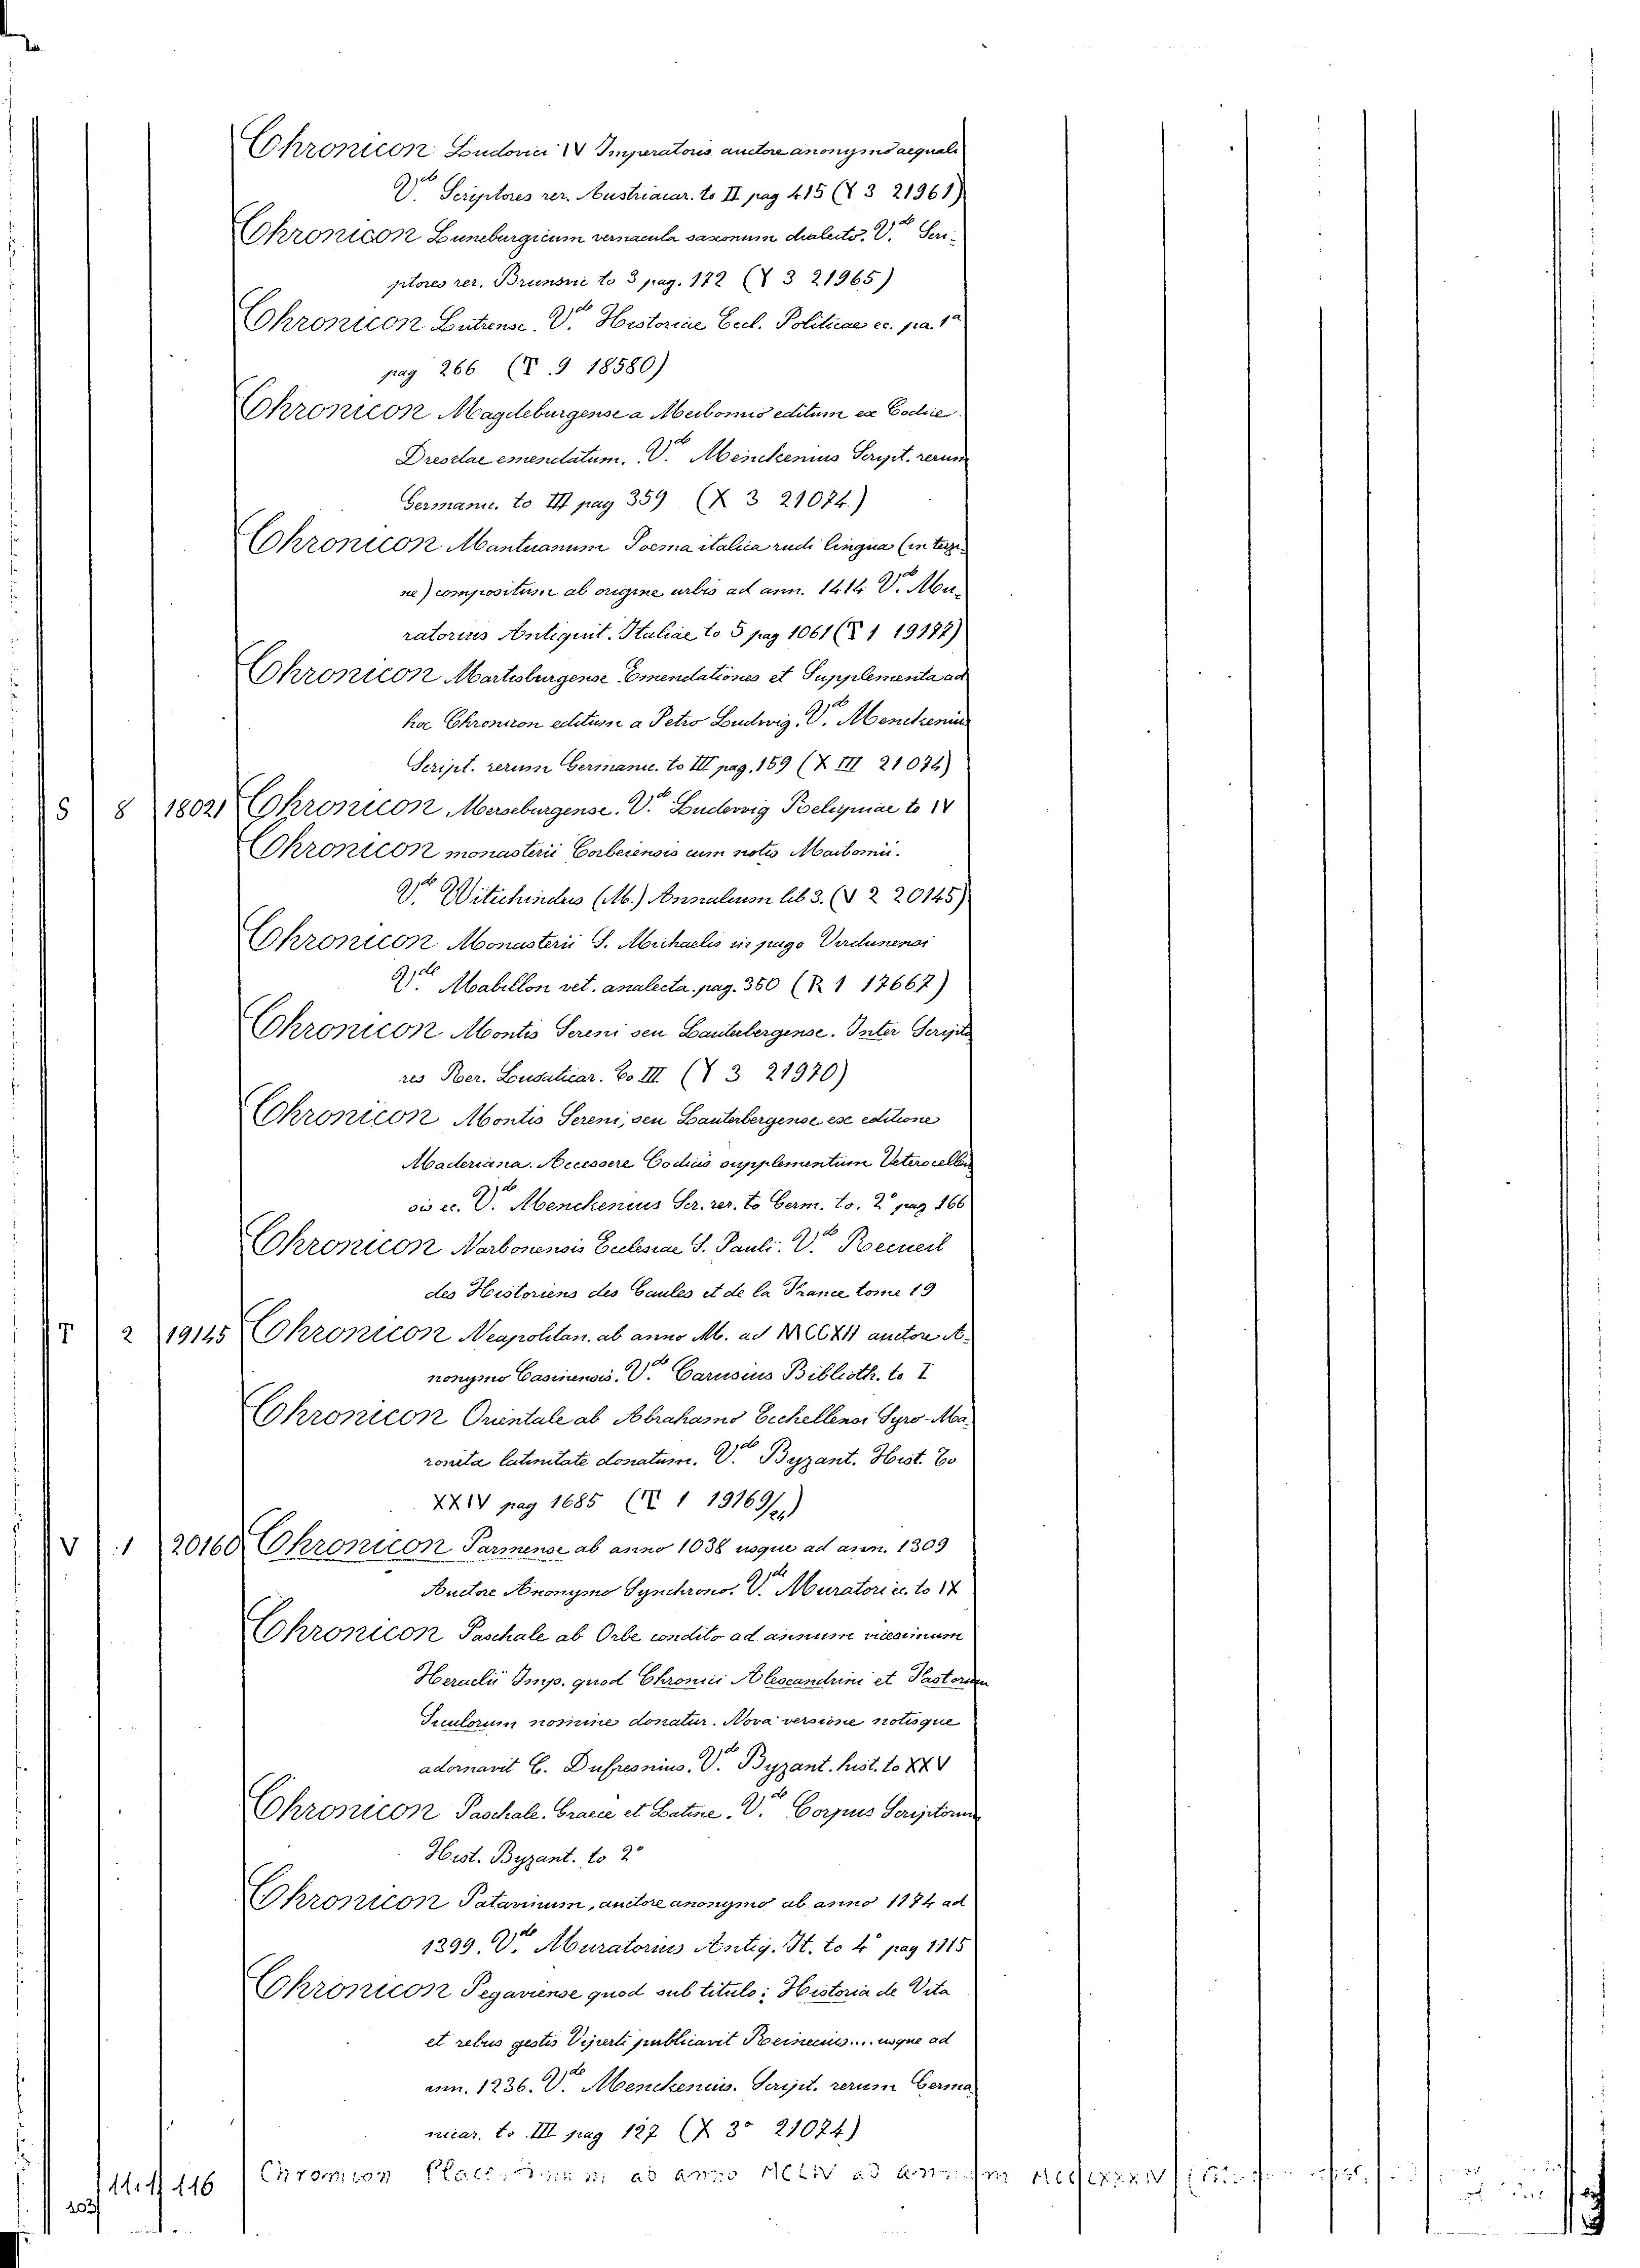 Chronicon Ludovici IV Imperatoris auctore anonymo aequali
V.de Scriptores rer. Austriacar. to II pag 415 (Y 3 21961)
Chronicon Luneburgicum vernacula saxonum dialecto. V.de Scri-
ptores rer. Brunsvic to 3 pag. 172 (Y 3 21965)
Chronicon Lutrense. V.de Historiae Eccl. Politicae ec. pa. 1a
pag 266 (T. 9 18580)
Chronicon Magdeburgense a Meibomio editum ex Codice
Dresdae emendatum. V.de Menckenius Script. rerum
Germanic. to III pag 359 (X 3 21074)
Chronicon Mantuanum Poema italica rudi lingua (in terzi-
ne) compositum ab origine urbis ad ann. 1414 V.de Mu-
ratorius Antiquit. Italiae to 5 pag 1061 (T 1 19177)
Chronicon Martisburgense Emendationes et Supplementa ad
hoc Chronicon editum a Petro Ludwig. V.de Menckenius
Script. rerum Germanic. to III pag. 159 (X III 21074)
S 8 18021 Chronicon Merseburgense. V.de Ludewig Reliquiae to IV
Chronicon monasterii Corbeiensis cum notis Maibomii.
V.de Witichindus (M.) Annalium lib 3. (V 2 20145)
Chronicon Monasterii S. Michaelis in pago Verdunensi
V.de Mabillon vet. analecta. pag. 350 (R 1 17667)
Chronicon Montis Sereni seu Lauterbergense. Inter Scripto
res Rer. Lusaticar. To III (Y 3 21970)
Chronicon Montis Sereni, seu Lauterbergense ex editione
Maderiana. Accessere Codicis supplementum Veterocellen
sis ec. V.de Menckenius Scr. rer. to Germ. to. 2° pag 166
Chronicon Narbonensis Ecclesiae S. Pauli. V.de Recueil
des Historiens des Gaules et de la France tome 19
T 2 19145 Chronicon Neapolitan. ab anno M. ad MCCXII auctore A-
nonymo Casinensis. V.de Carusius Biblioth. to I
Chronicon Orientale ab Abrahamo Ecchellensi Syro-Ma-
ronita latinitate donatum. V.de Byzant. Hist. To
XXIV pag 1685 (T 1 19169/24)
V 1 20160 Chronicon Parmense ab anno 1038 usque ad ann. 1309
Auctore Anonymo Synchrono. V.de Muratori ec. to IX
Chronicon Paschale ab Orbe condito ad annum vicesimum
Heraclii Imp. quod Chronici Alexandrini et Fastorum
Siculorum nomine donatur. Nova versione notisque
adornavit C. Dufresnius. V.de Byzant. hist. to XXV
Chronicon Paschale. Graece et Latine. V.de Corpus Scriptorum
Hist. Byzant. to 2°
Chronicon Patavinum, auctore anonymo ab anno 1174 ad
1399. V.de Muratorius Antiq. It. to 4° pag 1115
Chronicon Pegaviense quod sub titulo: Historia de Vita
et rebus gestis Viperti publicavit Reineccius.... usque ad
ann. 1236. V.de Menckenius. Script. rerum Germa
nicar. to III pag 127 (X 3° 21074)
116 Chronicon ab anno ad
203